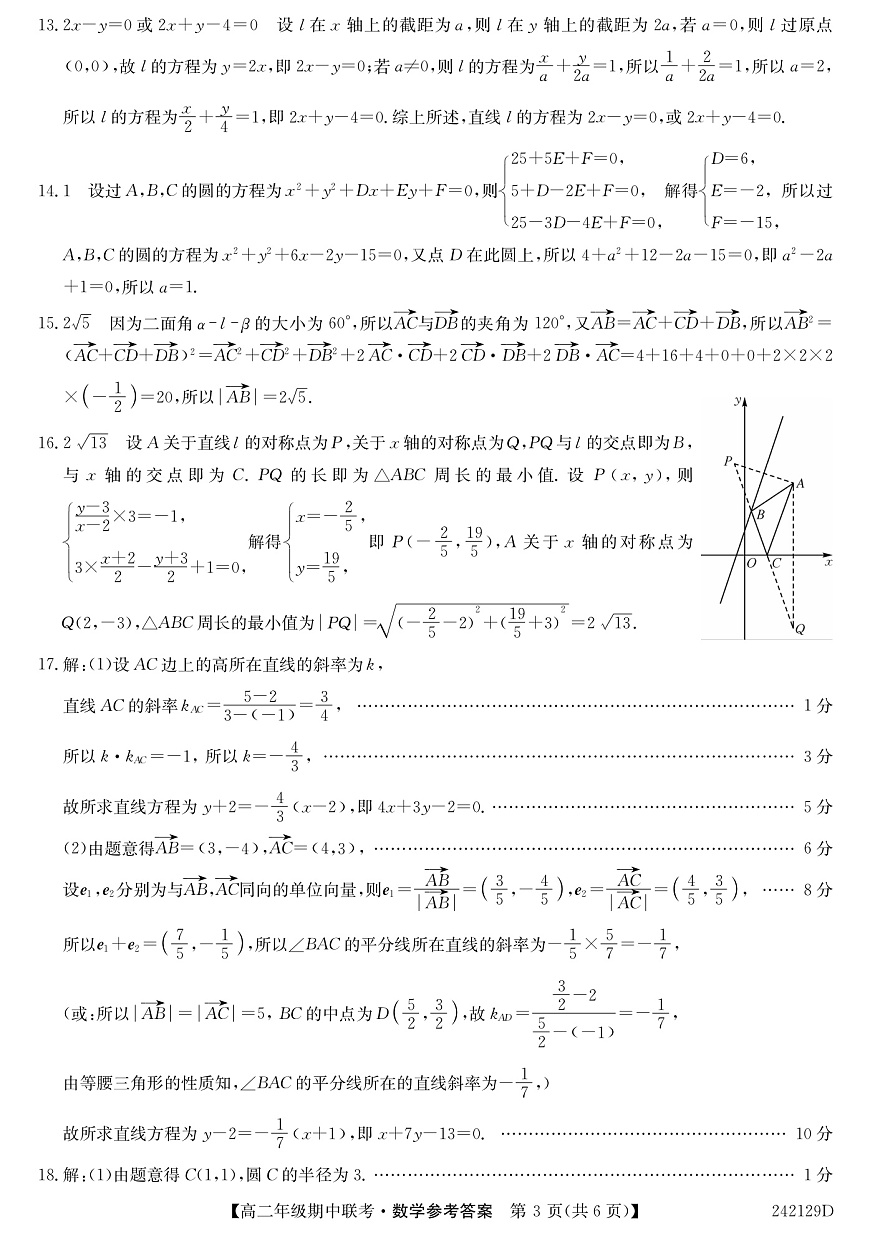 13. 2x－y＝0 或 2x＋y－4＝0　设 l 在 x 轴上的截距为 a,则 l 在 y 轴上的截距为 2a,若 a＝0,则 l 过原点
(0,0),故 l 的方程为 y＝2x,即 2x－y＝0;若 a≠0,则 l 的方程为 x/a＋y/2a＝1,所以 1/a＋2/2a＝1,所以 a＝2,
所以 l 的方程为 x/2＋y/4＝1,即 2x＋y－4＝0.综上所述,直线 l 的方程为 2x－y＝0,或 2x＋y－4＝0.
14. 1　设过 A,B,C 的圆的方程为 x²＋y²＋Dx＋Ey＋F＝0,则 {25＋5E＋F＝0, 5＋D－2E＋F＝0, 25－3D－4E＋F＝0, 解得 {D＝6, E＝－2, F＝－15, 所以过
A,B,C 的圆的方程为 x²＋y²＋6x－2y－15＝0,又点 D 在此圆上,所以 4＋a²＋12－2a－15＝0,即 a²－2a
＋1＝0,所以 a＝1.
15. 2√5　因为二面角 α－l－β 的大小为 60°,所以AC→与DB→的夹角为 120°,又AB→＝AC→＋CD→＋DB→,所以AB→²＝
(AC→＋CD→＋DB→)²＝AC→²＋CD→²＋DB→²＋2 AC→·CD→＋2 CD→·DB→＋2 DB→·AC→＝4＋16＋4＋0＋0＋2×2×2
×(－1/2)＝20,所以|AB→|＝2√5.
16. 2√13　设 A 关于直线 l 的对称点为 P,关于 x 轴的对称点为 Q,PQ 与 l 的交点即为 B,
与 x 轴的交点即为 C. PQ 的长即为 △ABC 周长的最小值. 设 P(x, y),则
{(y－3)/(x－2)×3＝－1, 3×(x＋2)/2－(y＋3)/2＋1＝0, 解得 {x＝－2/5, y＝19/5, 即 P(－2/5, 19/5),A 关于 x 轴的对称点为
Q(2,－3),△ABC 周长的最小值为|PQ|＝√((－2/5－2)²＋(19/5＋3)²)＝2√13.
y
P
A
B
O
C
x
Q
17. 解:(1)设 AC 边上的高所在直线的斜率为 k,
直线 AC 的斜率 k_AC＝(5－2)/(3－(－1))＝3/4, …… 1 分
所以 k·k_AC＝－1, 所以 k＝－4/3, …… 3 分
故所求直线方程为 y＋2＝－4/3(x－2),即 4x＋3y－2＝0. …… 5 分
(2)由题意得AB→＝(3,－4),AC→＝(4,3), …… 6 分
设e₁,e₂分别为与AB→,AC→同向的单位向量,则e₁＝AB→/|AB→|＝(3/5,－4/5),e₂＝AC→/|AC→|＝(4/5,3/5), …… 8 分
所以e₁＋e₂＝(7/5,－1/5),所以∠BAC 的平分线所在直线的斜率为－1/5×5/7＝－1/7,
(或:所以|AB→|＝|AC→|＝5, BC 的中点为 D(5/2,3/2),故 k_AD＝(3/2－2)/(5/2－(－1))＝－1/7,
由等腰三角形的性质知,∠BAC 的平分线所在的直线斜率为－1/7,)
故所求直线方程为 y－2＝－1/7(x＋1),即 x＋7y－13＝0. …… 10 分
18. 解:(1)由题意得 C(1,1),圆 C 的半径为 3. …… 1 分
【高二年级期中联考·数学参考答案　第 3 页(共 6 页)】　242129D